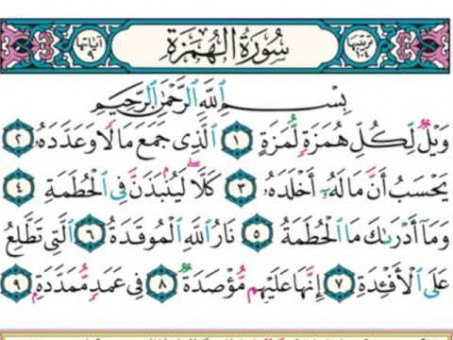 ترتيبها ١٠٤ سُورَةُ الهُمَزَةِ آياتها ٩
بِسْمِ اللَّهِ الرَّحْمَٰنِ الرَّحِيمِ
وَيْلٌ لِّكُلِّ هُمَزَةٍ لُّمَزَةٍ ١ الَّذِى جَمَعَ مَالًا وَعَدَّدَهُۥ ٢
يَحْسَبُ أَنَّ مَالَهُۥٓ أَخْلَدَهُۥ ٣ كَلَّا ۖ لَيُنۢبَذَنَّ فِى الْحُطَمَةِ ٤
وَمَآ أَدْرَىٰكَ مَا الْحُطَمَةُ ٥ نَارُ اللَّهِ الْمُوقَدَةُ ٦ الَّتِى تَطَّلِعُ
عَلَى الْأَفْـِٔدَةِ ٧ إِنَّهَا عَلَيْهِم مُّؤْصَدَةٌ ٨ فِى عَمَدٍ مُّمَدَّدَةٍۭ ٩